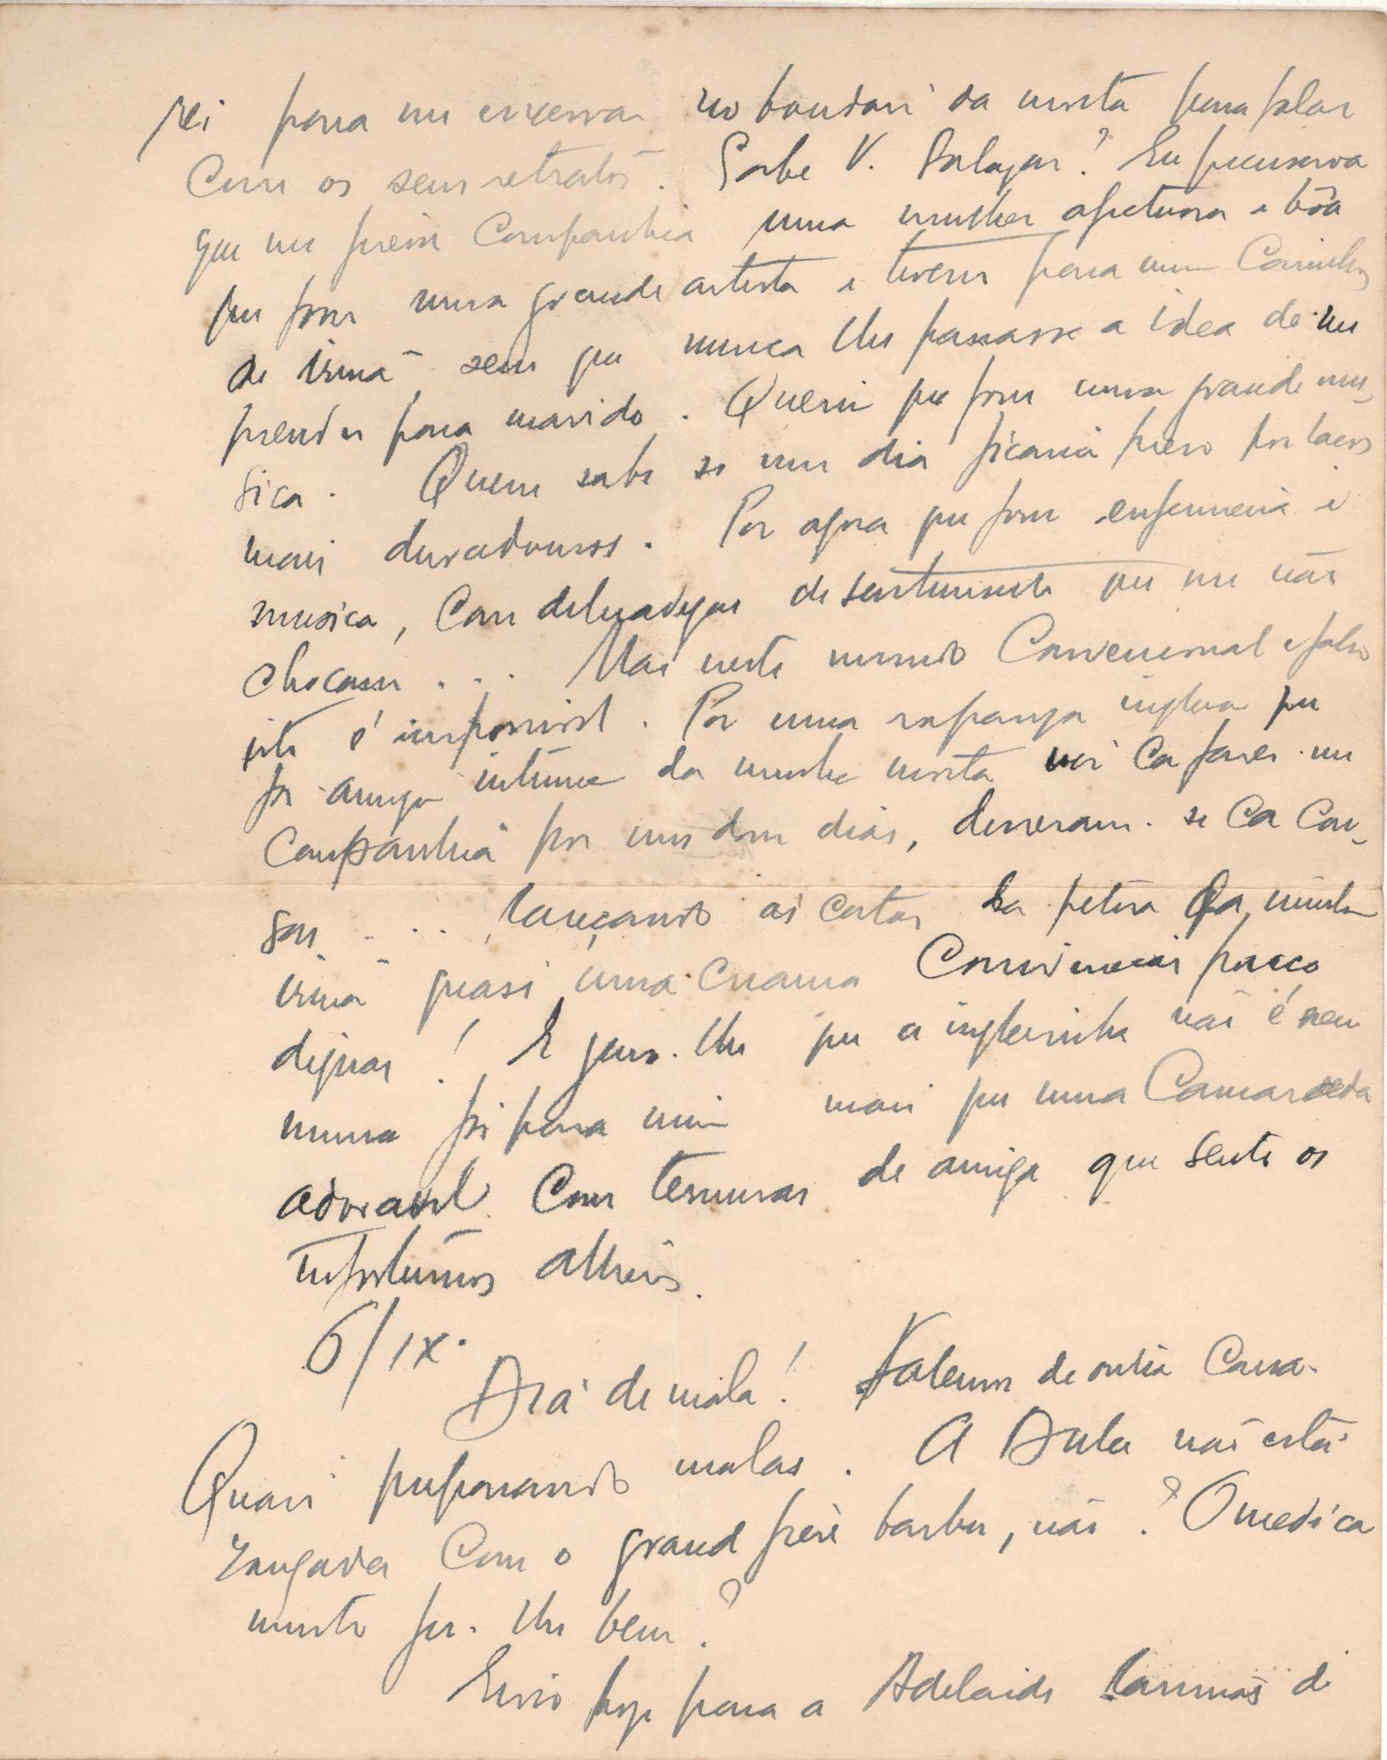 rei para me encerrar no boudoir da morta para falar
com os seus retratos. Sabe V. Salazar? Eu precisava
que me fizesse companhia uma mulher afectuosa e bôa
que fosse uma grande artista e tivesse para mim carinhos
de irmã sem que nunca lhe passasse a idea de me
prender para marido. Queria que fosse uma grande mu-
sica. Quem sabe se um dia ficaria preso por laços
mais duradouros. Por agora que fosse enfermeira e
musica, com delicadezas de sentimento que me não
chocassem... Mas neste mundo convencional e falso
isto é impossivel. Por uma rapariga inglesa que
foi amiga intima da minha morta vir cá fazer-me
companhia por uns dois dias, disseram-se cá cou-
sas... lançando ás costas da minha
irmã quasi uma creança conivencias pouco
dignas! E juro-lhe que a inglesinha não é nem
nunca foi para mim mais que uma camarada
adoravel com ternuras de amiga que sente os
infortunios alheios.
6/IX.
Dia de mala! Falemos de outra cousa.
Quasi preparando malas. A Dulce não está
zangada com o grand frère barbu, não? O medica
mento fez-lhe bem?
Envio hoje para a Adelaide laminas de